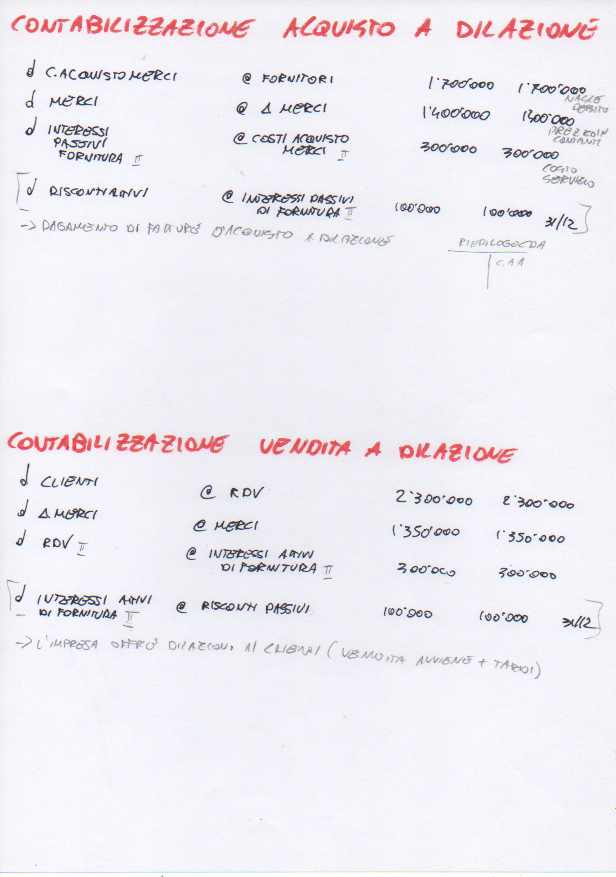 CONTABILIZZAZIONE ACQUISTO A DILAZIONE
d C. ACQUISTO MERCI @ FORNITORI 1'700'000 1'700'000
NASCE DEBITO
d MERCI @ Δ MERCI 1'400'000 1400'000
PREZZO IN CONTANTI
d INTERESSI PASSIVI FORNITURA II @ COSTI ACQUISTO MERCI II 300'000 300'000
COSTO SERVIZIO
d RISCONTI ATTIVI @ INTERESSI PASSIVI DI FORNITURA II 100'000 100'000 31/12
-> PAGAMENTO DI FATTURE D'ACQUISTO A DILAZIONE
C.A A
CONTABILIZZAZIONE VENDITA A DILAZIONE
d CLIENTI @ RDV 2'300'000 2'300'000
d Δ MERCI @ MERCI 1'350'000 1'350'000
d RDV II @ INTERESSI ATTIVI DI FORNITURA II 300'000 300'000
d INTERESSI ATTIVI DI FORNITURA II @ RISCONTI PASSIVI 100'000 100'000 31/12
-> L'IMPRESA OFFRE DILAZIONI AI CLIENTI (VENDITA AVVIENE + TARDI)